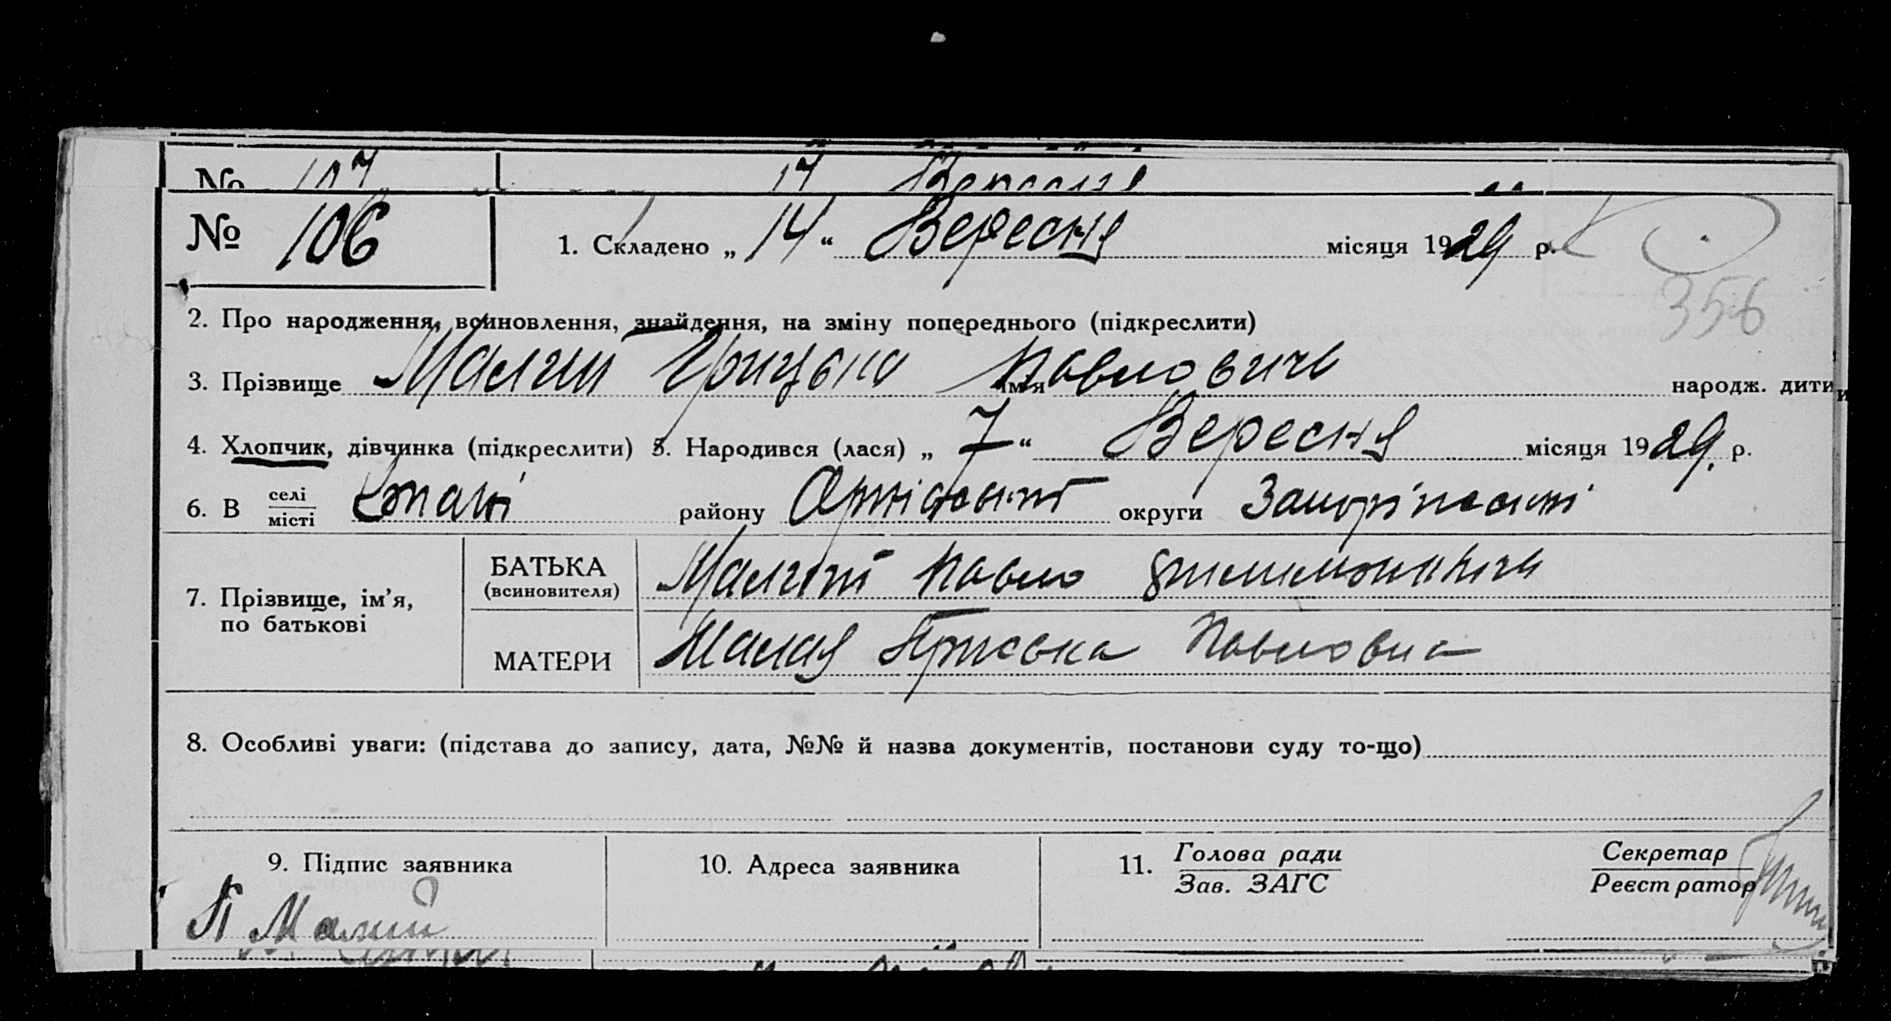 № 107 17 Вересня
№ 106 1. Складено „ 14 “ Вересня місяця 1929 р.
356
2. Про народження, всиновлення, знайдення, на зміну попереднього (підкреслити)
3. Прізвище Малий Грицько ім'я Павлович народж. дитини
4. Хлопчик, дівчинка (підкреслити) 5. Народився (лася) „ 7 “ Вересня місяця 1929 р.
6. В селі
місті району округи
7. Прізвище, ім’я,
по батькові
БАТЬКА
(всиновителя)
Малий Павло
МАТЕРИ
Малая Приська Павловна
8. Особливі уваги: (підстава до запису, дата, №№ й назва документів, постанови суду то-що)
9. Підпис заявника 10. Адреса заявника 11. Голова ради
Зав. ЗАГС
Секретар
Реєстратор
П Малий